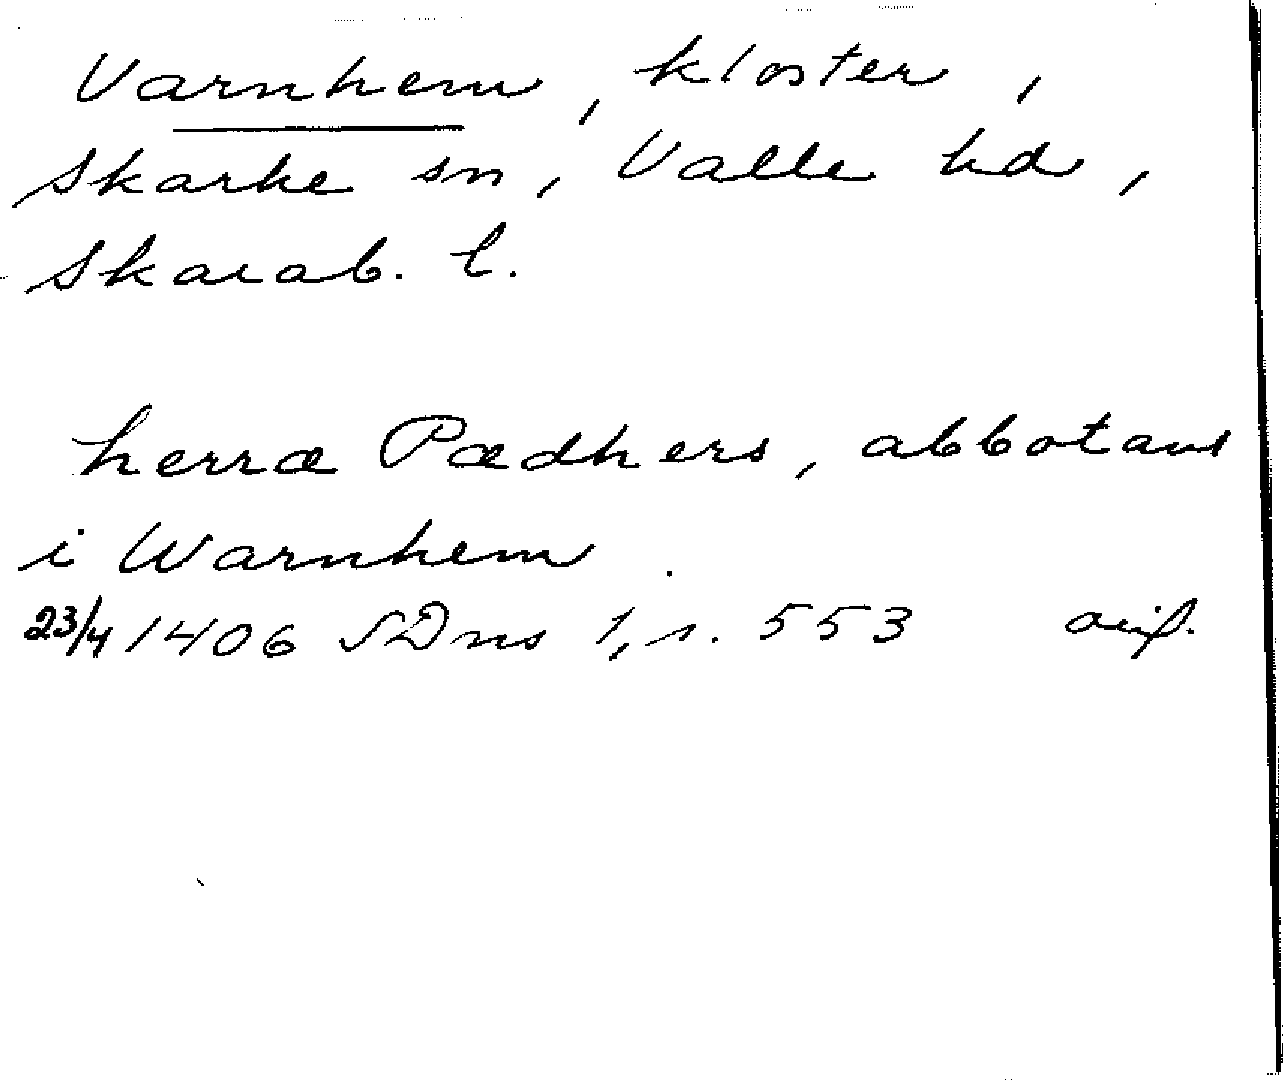 Varnhem, kloster,
Skarke sn, Valle hd,
Skarab. l.
herræ Pædhers, abbotans
i Warnhem.
23/4 1406 SDns 1, s. 553 avs.